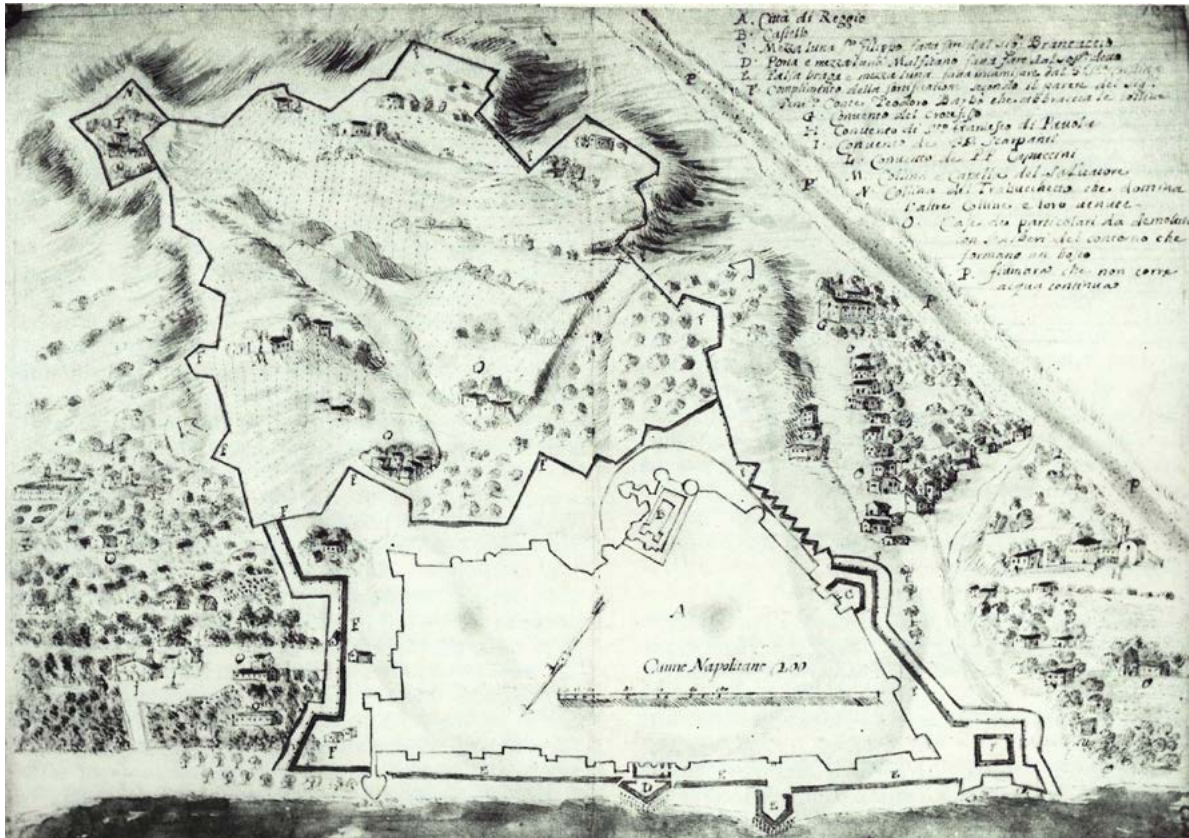 A. Città di Reggio
B. Castello
C. Mezza luna Sn Filippo fatta fare dal sigr Brancaccio
D. Porta e mezza luna Malfitano fatta fare dal sopdetto
E. Falsa braga e mezza luna
F. Complimento della fortificatione secondo il parere del sig.
Conte Teodoro Barbò che abbraccia le colline
G. Convento del Crocefisso
H. Convento di Sto francesco di Pavola
I. Convento de PP
L. Convento de PP Capuccini
M. Collina e Capella del Salvatore
N. Collina del Trabucchetto che domina
l'altre Colline e loro venute
O. Case de particolari da demolire
con l'alberi del contorno che
formano un bosco
P. fiumara che non corre
acqua continua
P
P
P
P
P
N
F
O
F
F
F
F
G
O
O
F
F
F
F
O
F
B
C
A
Canne Napolitane 200
F
F
F
E
E
E
D
E